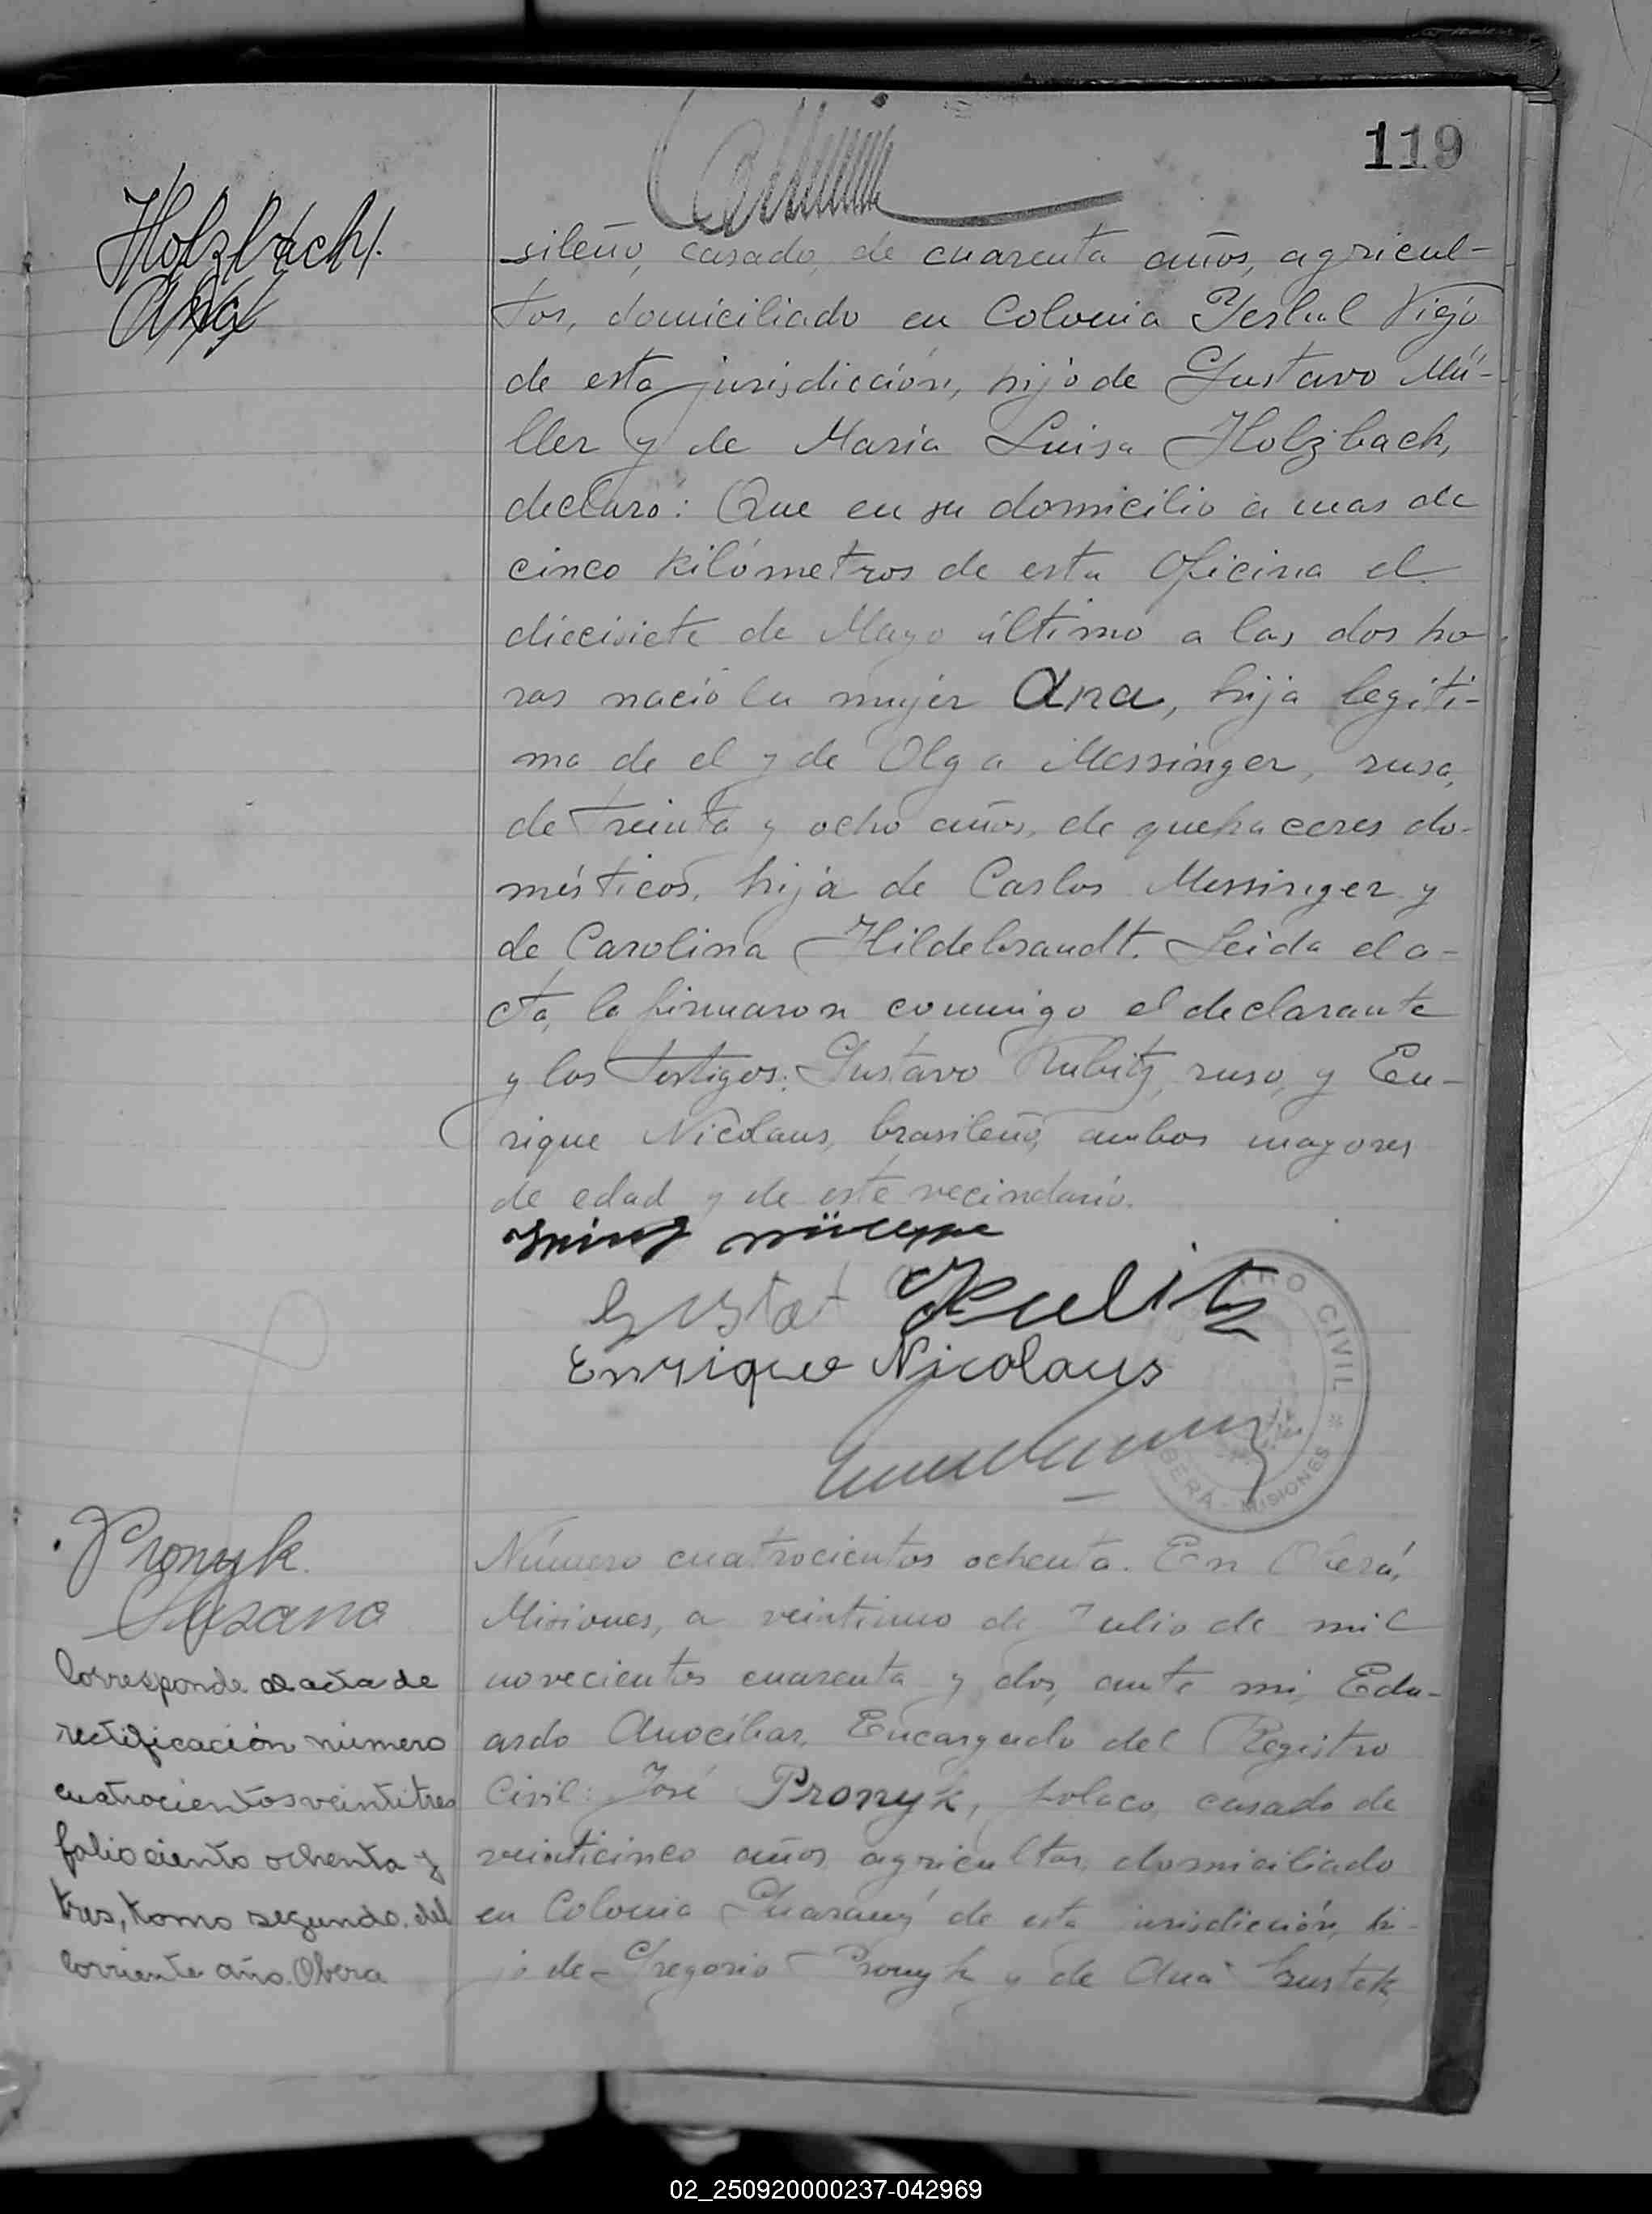 119
Holzbach
Ana
sileño, casado, de cuarenta años, agricul-
tor, domiciliado en Colonia Yerbal Viejo
de esta jurisdicción, hijo de Gustavo Mü-
ller y de Maria Luisa Holzbach,
declaró: Que en su domicilio a mas de
cinco kilómetros de esta Oficina el
diecisiete de Mayo último a las dos ho-
ras nació la mujer Ana, hija legiti-
ma de el y de Olga Messinger, rusa,
de treinta y ocho años, de quehaceres do-
mésticos, hija de Carlos Messinger y
de Carolina Hildebrandt. Leida el a-
cta, la firmaron conmigo el declarante
y los testigos: Gustavo Kubitz, ruso, y En-
rique Nicolaus, brasileño, ambos mayores
de edad y de este vecindario.
Gustav Kulitz
Enrique Nicolaus
REGISTRO CIVIL
OBERÁ - MISIONES
Pronyk
Susana
Corresponde al acta de
rectificación número
cuatrocientos veintitres
folio ciento ochenta y
tres, tomo segundo del
corriente año. Obera
Número cuatrocientos ochenta. En Oberá,
Misiones, a veintiuno de Julio de mil
novecientos cuarenta y dos, ante mi, Edu-
ardo Anocíbar, Encargado del Registro
Civil: José Pronyk, polaco, casado de
veinticinco años, agricultor, domiciliado
en Colonia Guaraný de esta jurisdicción, hi-
jo de Gregorio Pronyk y de Ana
02_250920000237-042969